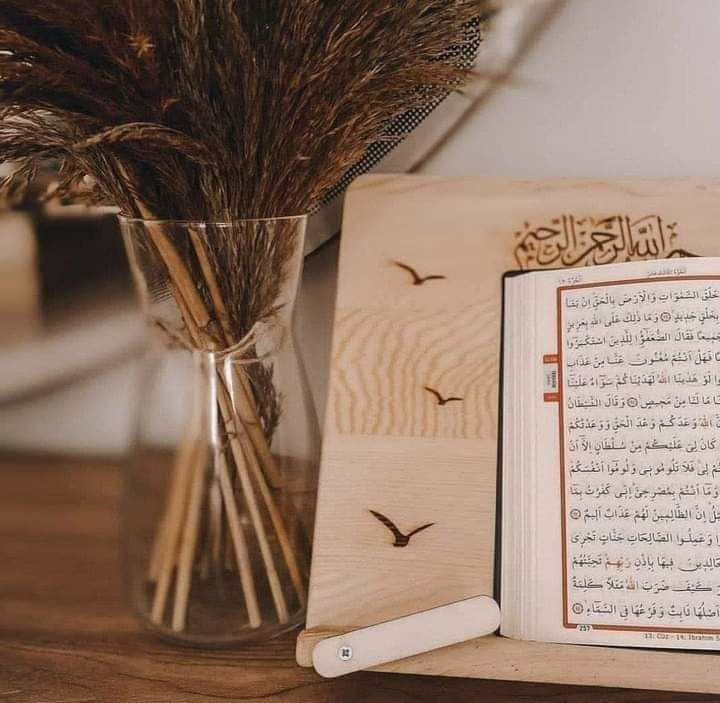 الله الرحمن الرحيم
خَلَقَ السَّمٰوَاتِ وَالْاَرْضَ بِالْحَقِّ اِنْ يَشَأْ
بِخَلْقٍ جَدِيدٍ ۝١٩ وَمَا ذٰلِكَ عَلَى اللّٰهِ بِعَزِيزٍ
جَمِيعًا فَقَالَ الضُّعَفٰٓؤُا لِلَّذِينَ اسْتَكْبَرُٓوا
فَهَلْ اَنْتُمْ مُغْنُونَ عَنَّا مِنْ عَذَابِ
لَوْ هَدٰينَا اللّٰهُ لَهَدَيْنَاكُمْ سَوَٓاءٌ عَلَيْنَٓا
مَا لَنَا مِنْ مَحِيصٍ ۝٢١ وَقَالَ الشَّيْطَانُ
اللّٰهَ وَعَدَكُمْ وَعْدَ الْحَقِّ وَوَعَدْتُكُمْ
كَانَ لِيَ عَلَيْكُمْ مِنْ سُلْطَانٍ اِلَّٓا اَنْ
لِي فَلَا تَلُومُونِي وَلُومُٓوا اَنْفُسَكُمْ
وَمَٓا اَنْتُمْ بِمُصْرِخِيَّ اِنِّي كَفَرْتُ بِمَٓا
اِنَّ الظَّالِمِينَ لَهُمْ عَذَابٌ اَلِيمٌ ۝٢٢
وَعَمِلُوا الصَّالِحَاتِ جَنَّاتٍ تَجْرِي
خَالِدِينَ فِيهَا بِاِذْنِ رَبِّهِمْ تَحِيَّتُهُمْ
كَيْفَ ضَرَبَ اللّٰهُ مَثَلًا كَلِمَةً
اَصْلُهَا ثَابِتٌ وَفَرْعُهَا فِي السَّمَٓاءِ ۝٢٤
257
13. Cüz - 14. İbrahim S